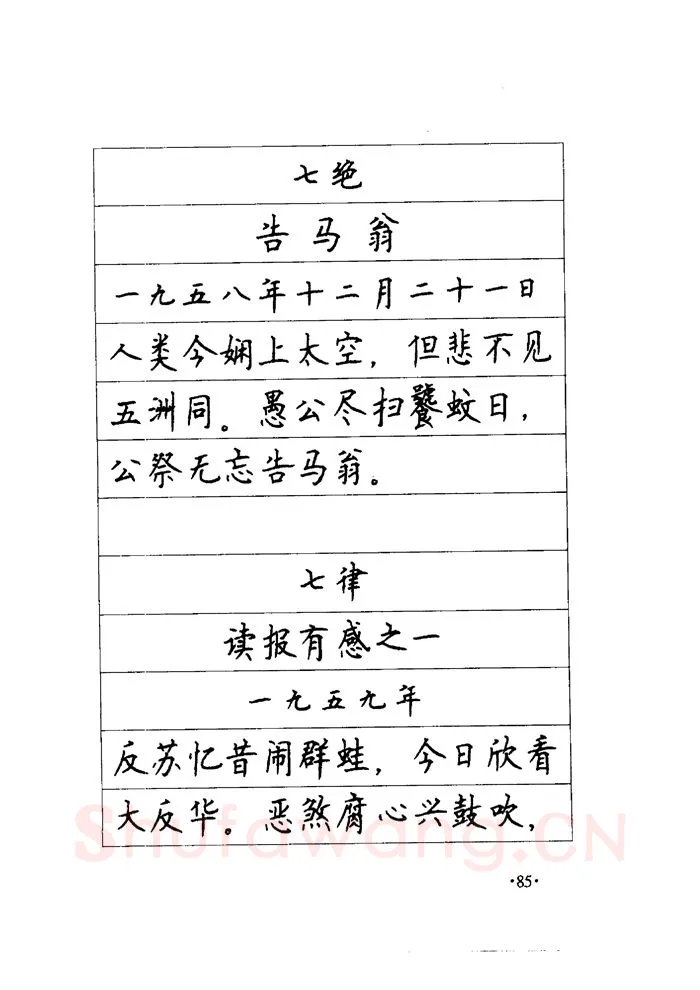 七绝
告马翁
一九五八年十二月二十一日
人类今娴上太空，但悲不见
五洲同。愚公尽扫饕蚊日，
公祭无忘告马翁。
七律
读报有感之一
一九五九年
反苏忆昔闹群蛙，今日欣看
大反华。恶煞腐心兴鼓吹，
Shufawang.CN
·85·